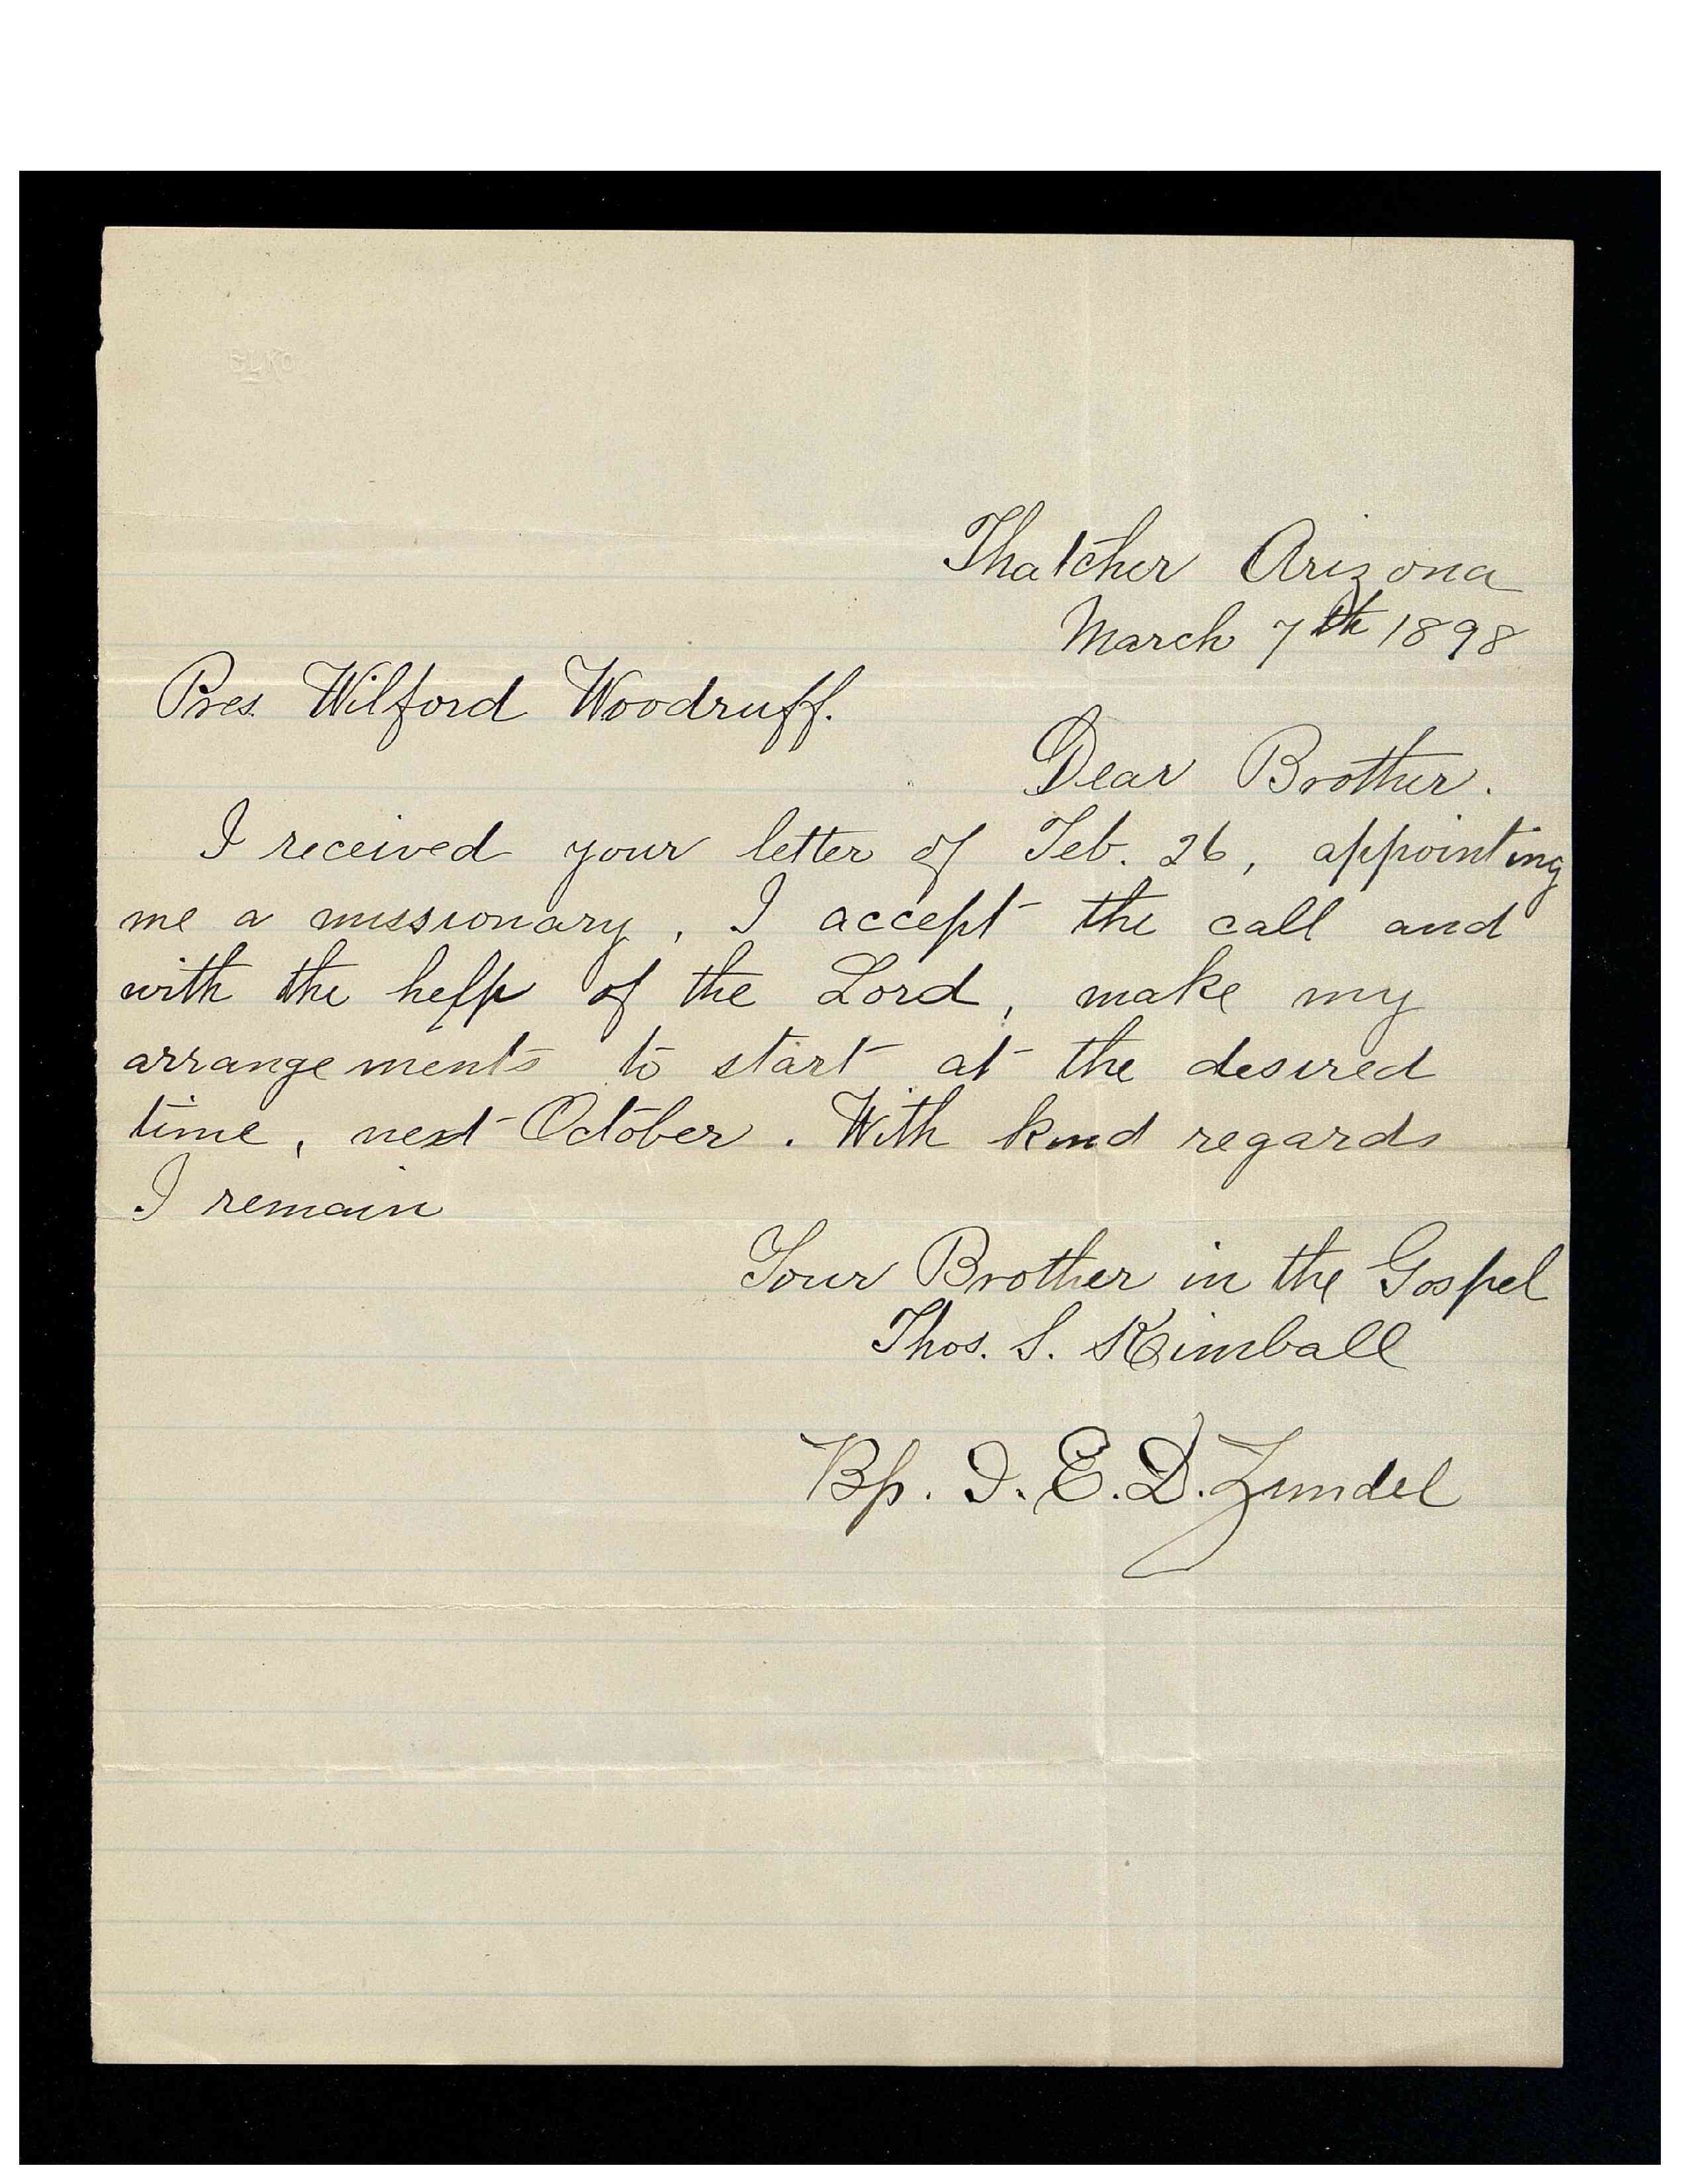 Thatcher Arizona
March 7th 1898
Pres. Wilford Woodruff.
Dear Brother.
I received your letter of Feb. 26, appointing
me a missionary. I accept the call and
with the help of the Lord, make my
arrangements to start at the desired
time, next October. With kind regards
I remain
Your Brother in the Gospel
Thos. S. Kimball
Bp. I. E. D. Zundel